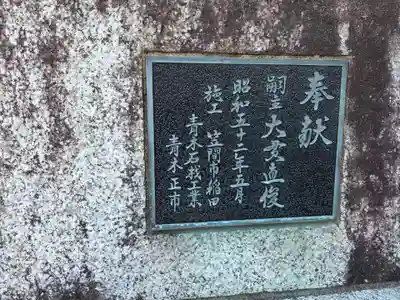 奉献
嗣主 大貫直俊
昭和五十二年五月
施工 笠間市稲田
青木石材工業
青木正市